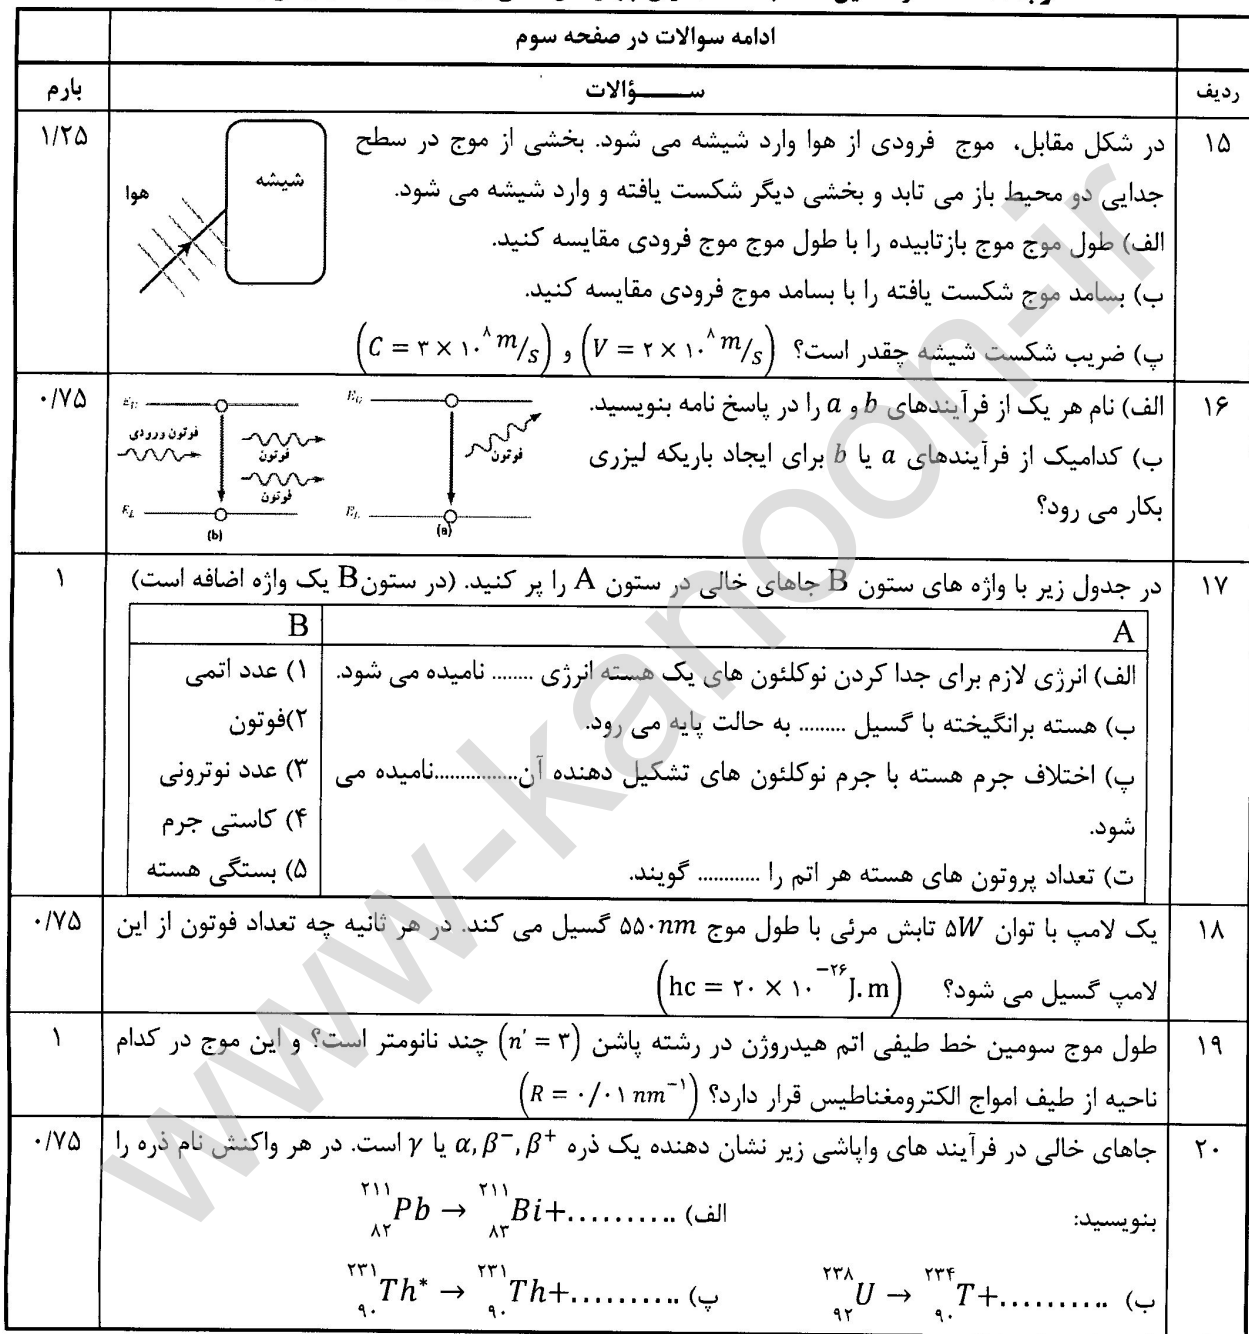 ادامه سوالات در صفحه سوم
ردیف
ســـــؤالات
بارم
۱۵
در شکل مقابل، موج فرودی از هوا وارد شیشه می شود. بخشی از موج در سطح
جدایی دو محیط باز می تابد و بخشی دیگر شکست یافته و وارد شیشه می شود.
الف) طول موج موج بازتابیده را با طول موج موج فرودی مقایسه کنید.
ب) بسامد موج شکست یافته را با بسامد موج فرودی مقایسه کنید.
پ) ضریب شکست شیشه چقدر است؟ (V = ۲ × ۱۰^۸ m/s) و (C = ۳ × ۱۰^۸ m/s)
شیشه
هوا
۱/۲۵
۱۶
الف) نام هر یک از فرآیندهای b و a را در پاسخ نامه بنویسید.
ب) کدامیک از فرآیندهای a یا b برای ایجاد باریکه لیزری
بکار می رود؟
E_U
فوتون
E_L
(a)
E_U
فوتون ورودی
فوتون
فوتون
E_L
(b)
۰/۷۵
۱۷
در جدول زیر با واژه های ستون B جاهای خالی در ستون A را پر کنید. (در ستون B یک واژه اضافه است)
A
الف) انرژی لازم برای جدا کردن نوکلئون های یک هسته انرژی ........ نامیده می شود.
ب) هسته برانگیخته با گسیل ......... به حالت پایه می رود.
پ) اختلاف جرم هسته با جرم نوکلئون های تشکیل دهنده آن................نامیده می
شود.
ت) تعداد پروتون های هسته هر اتم را ............ گویند.
B
۱) عدد اتمی
۲)فوتون
۳) عدد نوترونی
۴) کاستی جرم
۵) بستگی هسته
۱
۱۸
یک لامپ با توان ۵W تابش مرئی با طول موج ۵۵۰nm گسیل می کند. در هر ثانیه چه تعداد فوتون از این
لامپ گسیل می شود؟ (hc = ۲۰ × ۱۰^−۲۶ J.m)
۰/۷۵
۱۹
طول موج سومین خط طیفی اتم هیدروژن در رشته پاشن (n′ = ۳) چند نانومتر است؟ و این موج در کدام
ناحیه از طیف امواج الکترومغناطیس قرار دارد؟ (R = ۰/۰۱ nm^−۱)
۱
۲۰
جاهای خالی در فرآیند های واپاشی زیر نشان دهنده یک ذره α, β⁻, β⁺ یا γ است. در هر واکنش نام ذره را
بنویسید:
الف) ²¹¹₈₂Pb → ²¹¹₈₃Bi+...........
ب) ²³⁸₉₂U → ²³⁴₉₀T+...........
پ) ²³¹₉₀Th* → ²³¹₉₀Th+...........
۰/۷۵
www-kanoon-ir